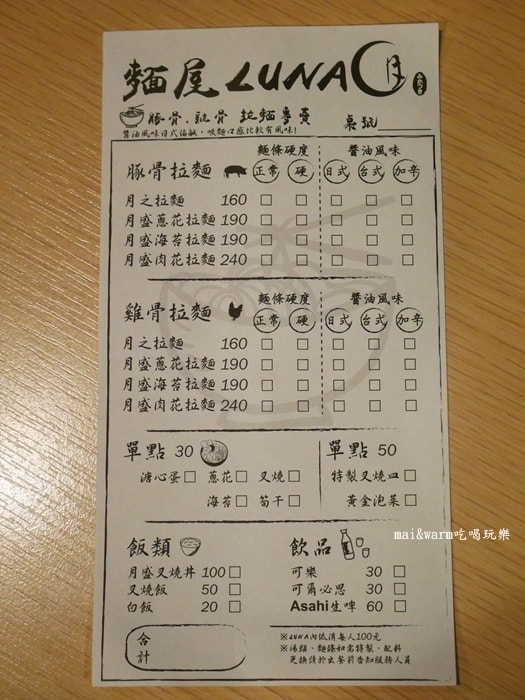 麵屋LUNA 月
豚骨．雞骨 拉麵專賣
醬油風味日式偏鹹，吸麵口感比較有風味!
桌號
豚骨拉麵 麵條硬度 醬油風味
正常 硬 日式 台式 加辛
月之拉麵 160 □ □ □ □ □
月盛蔥花拉麵 190 □ □ □ □ □
月盛海苔拉麵 190 □ □ □ □ □
月盛肉花拉麵 240 □ □ □ □ □
雞骨拉麵 麵條硬度 醬油風味
正常 硬 日式 台式 加辛
月之拉麵 160 □ □ □ □ □
月盛蔥花拉麵 190 □ □ □ □ □
月盛海苔拉麵 190 □ □ □ □ □
月盛肉花拉麵 240 □ □ □ □ □
單點 30
溏心蛋□ 蔥花□ 叉燒□
海苔□ 筍干□
單點 50
特製叉燒皿□
黃金泡菜□
mai&warm吃喝玩樂
飯類
月盛叉燒丼 100□
叉燒飯 50□
白飯 20□
合計
飲品
可樂 30□
可爾必思 30□
Asahi生啤 60□
※LUNA內低消每人100元
※湯類、麵條如需特製、配料
更換請於出餐前告知服務人員